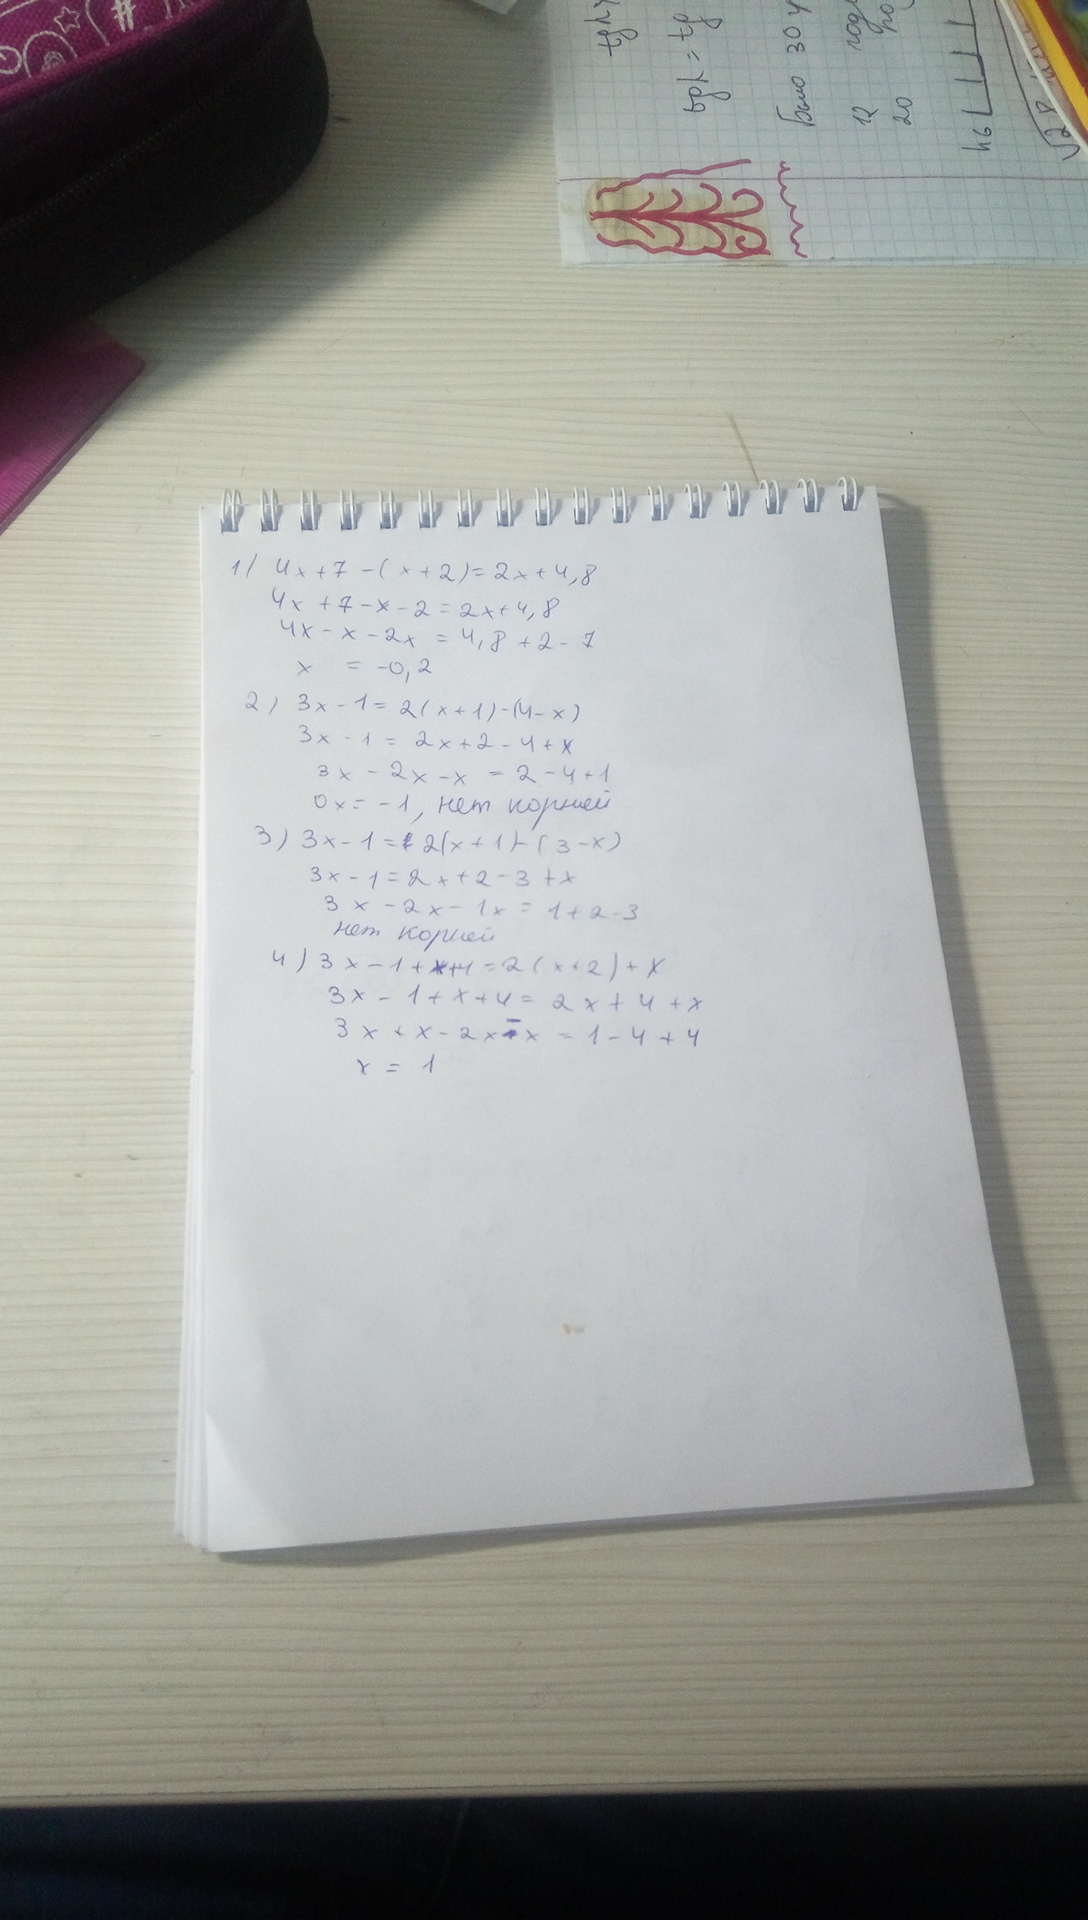 tgh
tgh = tg
Было 30 у
12 под
20 ро
h6
√28
1) 4x+7-(x+2)=2x+4,8
4x+7-x-2=2x+4,8
4x-x-2x = 4,8+2-7
x = -0,2
2) 3x-1=2(x+1)-(4-x)
3x-1=2x+2-4+x
3x-2x-x = 2-4+1
0x=-1, нет корней
3) 3x-1=2(x+1)-(3-x)
3x-1=2x+2-3+x
3x-2x-1x=1+2-3
нет корней
4) 3x-1+x+4=2(x+2)+x
3x-1+x+4=2x+4+x
3x+x-2x-x=1-4+4
x = 1